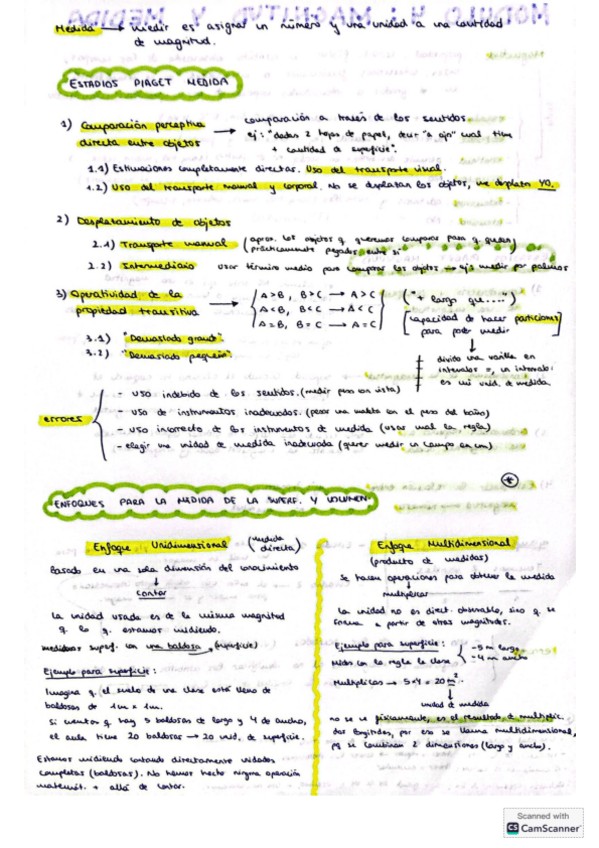 Medida → medir es asignar un número y una unidad a una cantidad
de magnitud.
ESTADIOS PIAGET MEDIDA
1) Comparación perceptiva
directa entre objetos
→ comparación a través de los sentidos
ej: "dadas 2 hojas de papel, decir "a ojo" cual tiene
+ cantidad de superficie".
1.1) Estimaciones completamente directas. Uso del transporte visual.
1.2) Uso del transporte manual y corporal. No se desplazan los objetos, me desplazo YO.
2) Desplazamiento de objetos
2.1) Transporte manual (aprox. los objetos q queremos comparar para q queden
prácticamente pegados entre sí
2.2) Intermediario usar término medio para comparar los objetos → ej: medir por palmos
3) Operatividad de la
propiedad transitiva
→ A>B, B>C → A>C
A<B, B<C → A<C
A=B, B=C → A=C
("+ largo que....")
[capacidad de hacer particiones]
para poder medir
divido una varilla en
intervalos =, un intervalo
es mi unid. de medida.
3.1) "Demasiado grande"
3.2) "Demasiado pequeño"
errores
- uso indebido de los sentidos. (medir peso con vista)
- uso de instrumentos inadecuados. (pesar una maleta con el peso del baño)
- uso incorrecto de los instrumentos de medida (usar mal la regla)
- elegir una unidad de medida inadecuada (querer medir un campo en cm)
ENFOQUES PARA LA MEDIDA DE LA SUPERF. Y VOLUMEN
Enfoque Unidimensional (medida
directa)
Basado en una sola dimensión del conocimiento
↓
contar
La unidad usada es de la misma magnitud
q lo q. estamos midiendo.
medimos superf. con una baldosa (superficie)
Ejemplo para superficie:
Imagina q. el suelo de una clase está lleno de
baldosas de 1m x 1m.
Si cuentas q hay 5 baldosas de largo y 4 de ancho,
el aula tiene 20 baldosas → 20 unid. de superficie.
Estamos midiendo contando directamente unidades
completas (baldosas). No hemos hecho ninguna operación
matemát. + allá de contar.
Enfoque Multidimensional
(producto de medidas)
Se hacen operaciones para obtener la medida
↓
multiplicar
La unidad no es direct. observable, sino q. se
forma a partir de otras magnitudes.
Ejemplo para superficie: -5 m largo
-4 m ancho
Mides con la regla la clase
Multiplicas → 5x4 = 20 m²
↓
unidad de medida
no se ve físicamente, es el resultado de multiplic.
dos longitudes, por eso se llama multidimensional,
pq se combinan 2 dimensiones (largo y ancho).
Scanned with
CS CamScanner